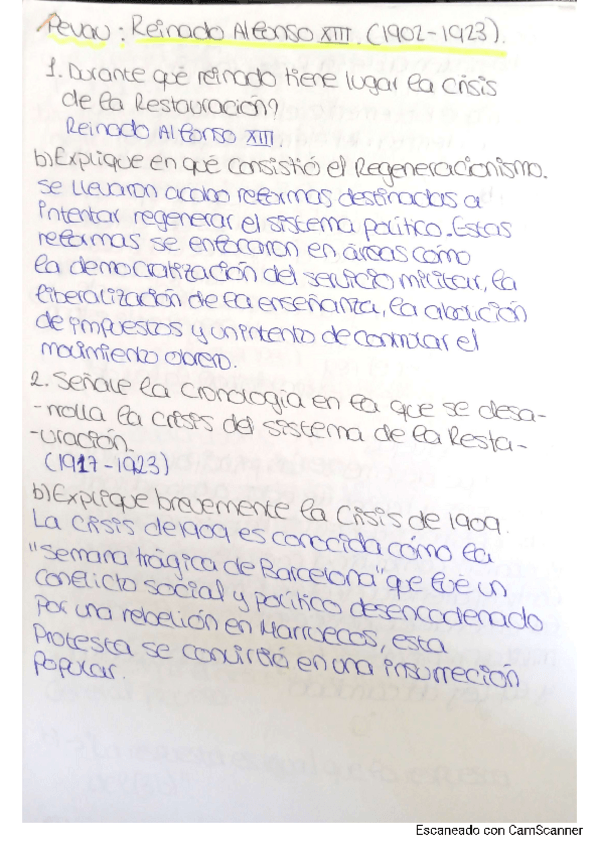 Pevau: Reinado Alfonso XIII. (1902-1923).
1. Durante qué reinado tiene lugar la crisis
de la Restauración?
Reinado Alfonso XIII.
b) Explique en qué consistió el Regeneracionismo.
Se llevaron acabo reformas destinadas a
intentar regenerar el sistema político. Estas
reformas se enfocaron en áreas cómo
la democratización del servicio militar, la
liberalización de la enseñanza, la abolición
de impuestos y un intento de controlar el
movimiento obrero.
2. Señale la cronología en la que se desa-
-rrolla la crisis del sistema de la Resta-
-uración.
(1917-1923)
b) Explique brevemente la Crisis de 1909.
La crisis de 1909 es conocida cómo la
"Semana trágica de Barcelona" que fue un
conflicto social y político desencadenado
por una rebelión en Marruecos, esta
protesta se convirtió en una insurreción
popular.
Escaneado con CamScanner